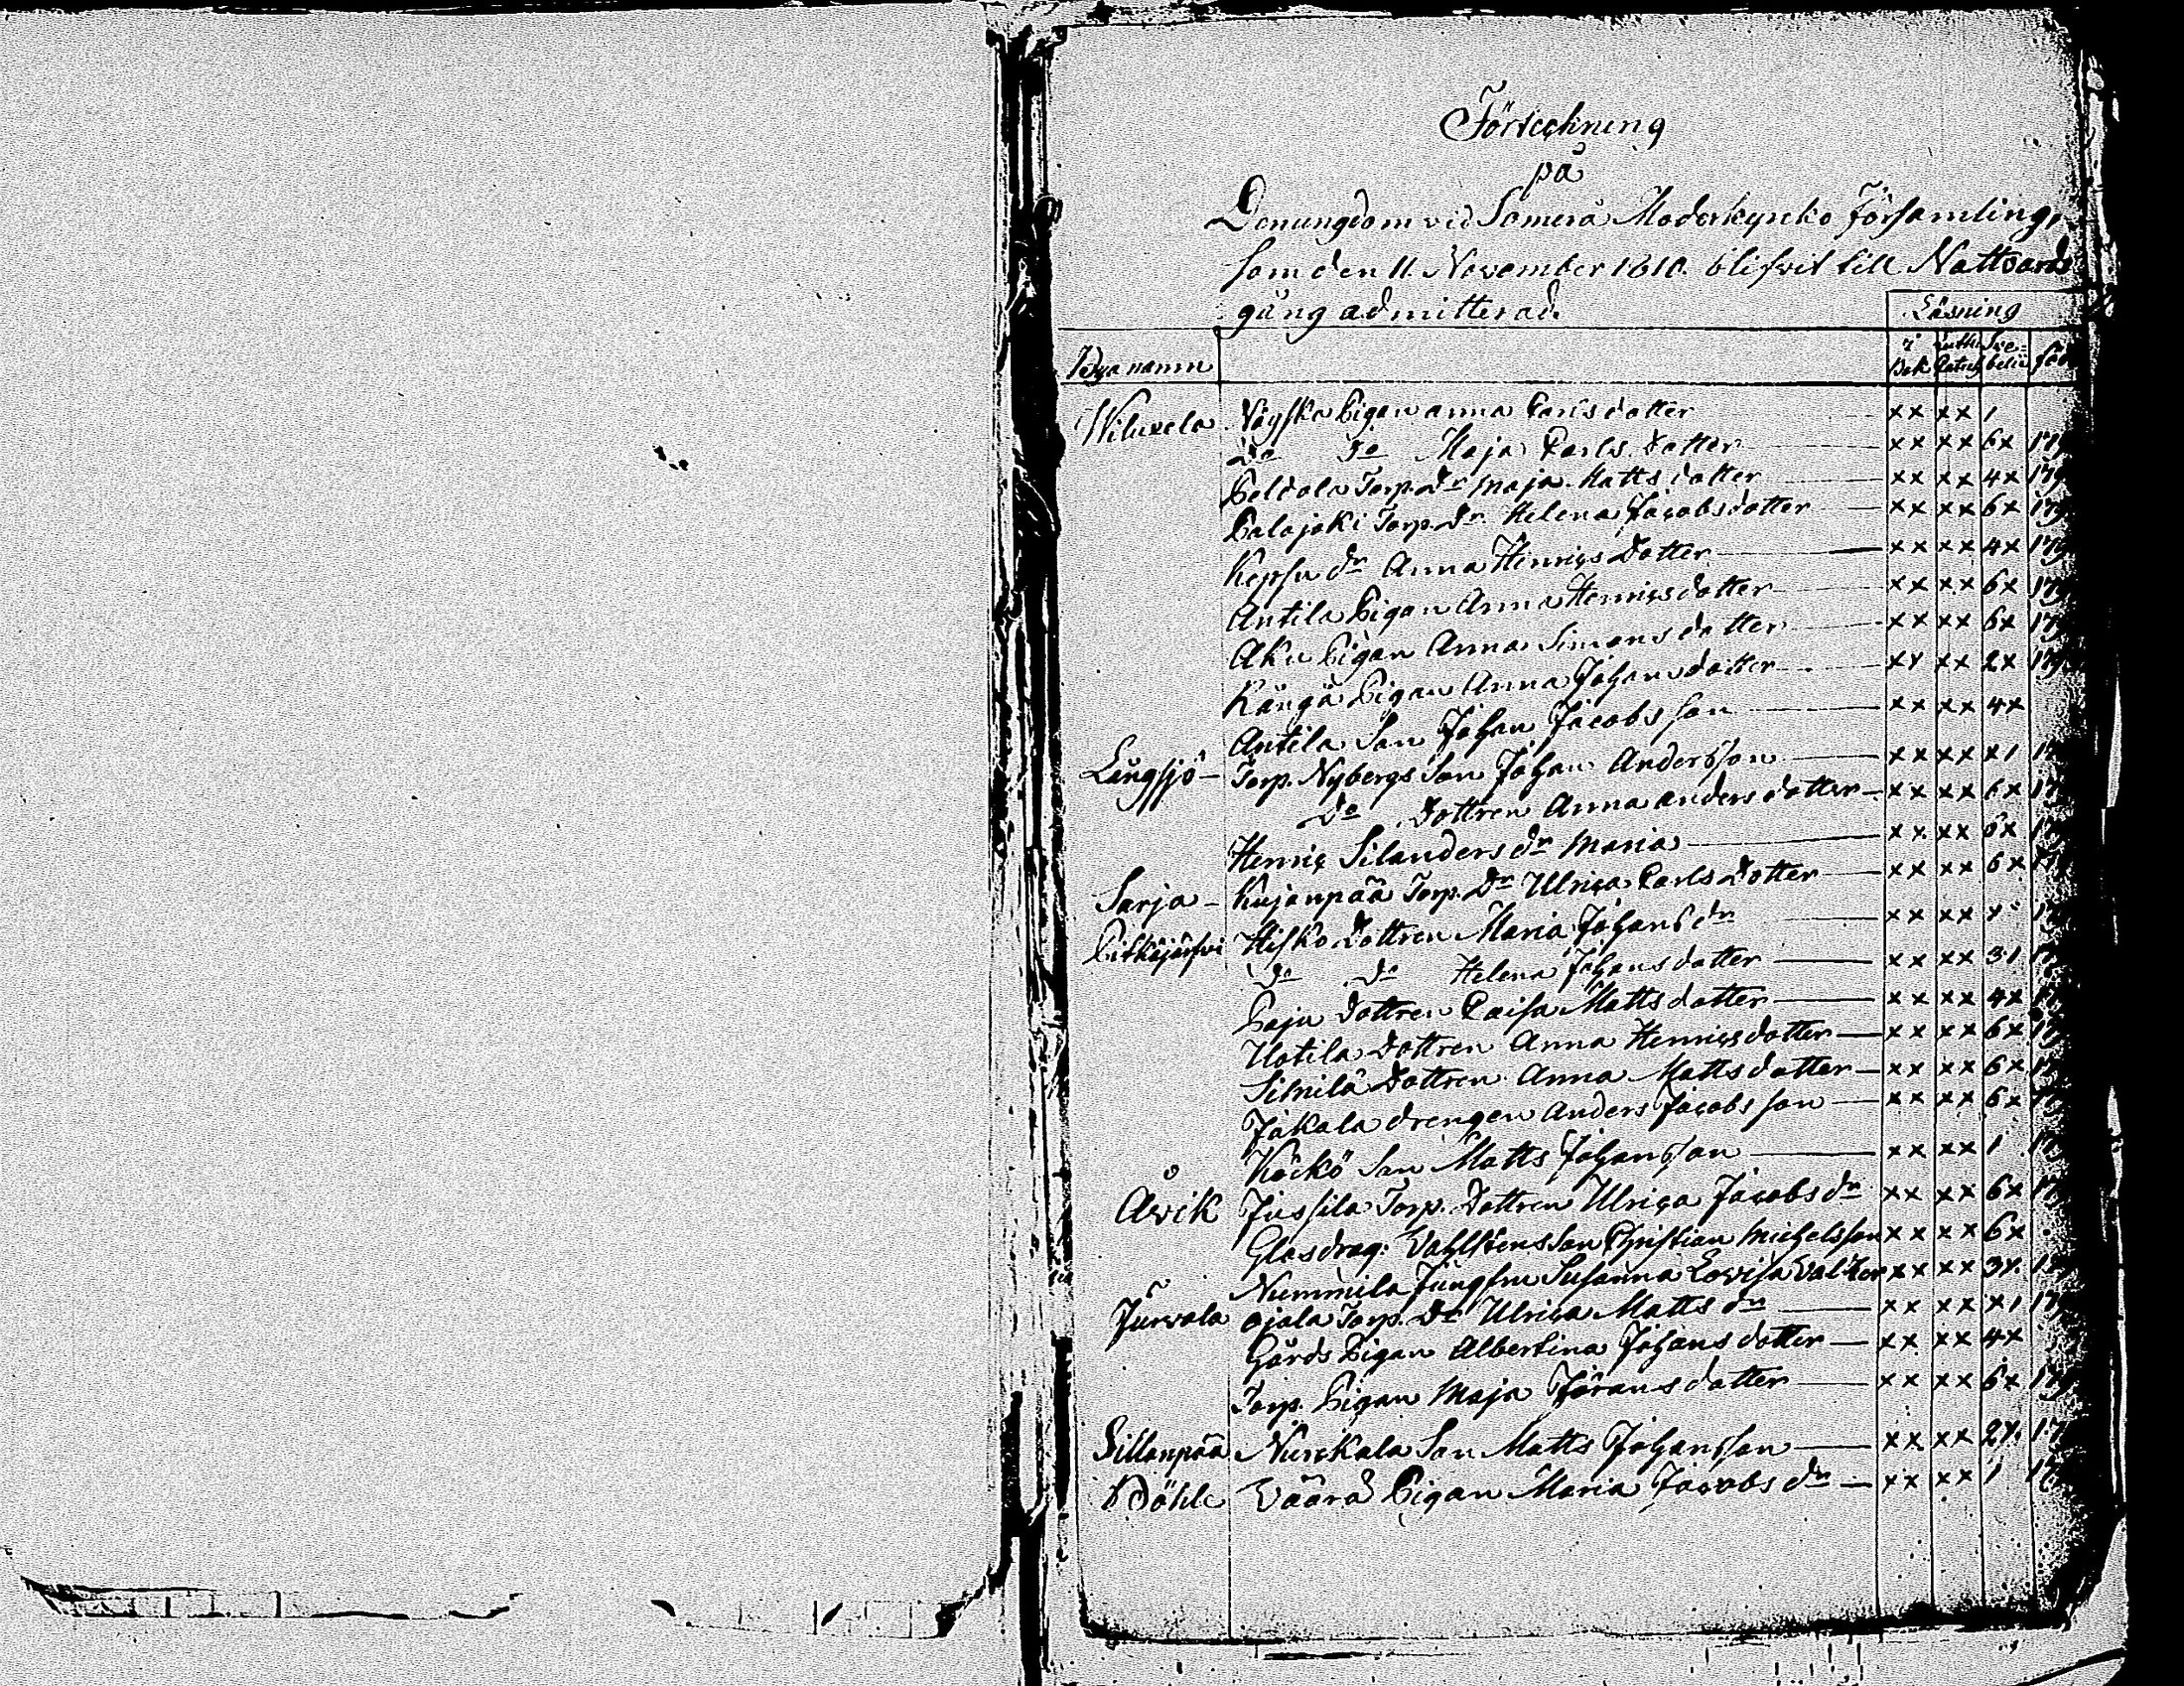 Förteckning
på
Den ungdom vid Somero Moderkyrko Församling,
som den 11. November 1810. blifvit till Nattvards
gång admitterad.
Läsning
Bya namn
i Bok
Luth: Catech
Sve- belii
föd
Wiluxela Nöyskä Pigan Anna Carlsdotter xx xx 1
Do Do Maja Carls dotter xx xx 6x 179
Peldola Torp. Dr Maja Matts dotter xx xx 4x 179
Palajoki Torp. Dr Helena Jacobsdotter xx xx 6x 179
Kepsu dr Anna Henrics Dotter xx xx 4x 179
Antila Pigan Anna Henricsdotter xx xx 6x 179
Aku Pigan Anna Simonsdotter xx xx 6x 179
Kångå Pigan Anna Johansdotter xx xx 2x 179
Antila Son Johan Jacobsson xx xx 4x
Långsjö - Torp. Nybergs Son Johan Andersson xx xx x1 17
Do Dottren Anna Andersdotter xx xx 6x 17
Henric Silanders dr Maria xx xx 6x 17
Sarja - Kujanpää Torp. Dr Ulrica Carls Dotter xx xx 6x 17
Pitkäjärfvi Hisko Dottren Maria Johans dr xx xx x 17
Do Do Helena Johansdotter xx xx 31 17
Paju Dottren Caisa Mattsdotter xx xx 4x 17
Uotila Dottren Anna Henricsdotter xx xx 6x 17
Simila Dottren Anna Mattsdotter xx xx 6x 17
Jakala drengen Anders Jacobsson xx xx 6x 17
Köckö Son Matts Johansson xx xx 1 17
Åvik Jussila Torp. Dottren Ulrica Jacobs dr xx xx 6x 17
Glasdrag: Vahlstens Son Christian Michelsson xx xx 6x
Nummila Jungfru Susanna Lovisa Valker xx xx 3x 17
Jurvala Ojala Torp. Dr Ulrica Matts dr xx xx x1 17
Gårds Pigan Albertina Johansdotter xx xx 4x
Torp. Pigan Maja Göransdotter xx xx 6x 179
Sillanpää Nurckala Son Matts Johansson xx xx 2x 17
Pöhle Väärä Pigan Maria Jacobs dr xx xx 1 17